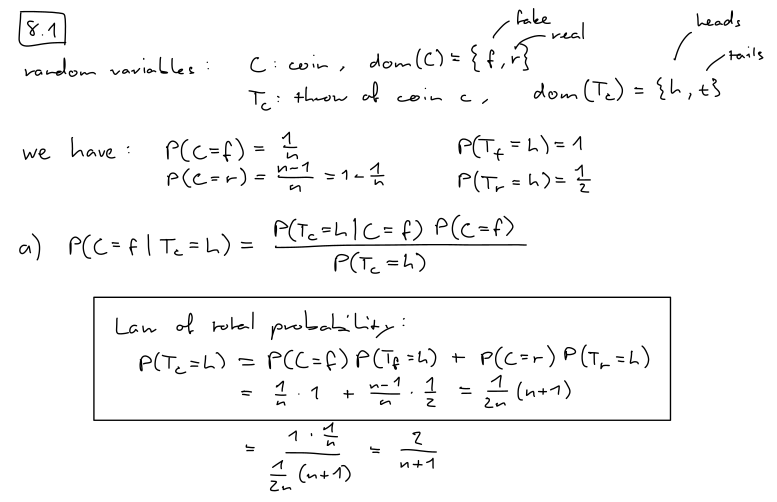 8.1
fake
real
heads
tails
random variables: C: coin, dom(C) = {f, r}
T_c: throw of coin c, dom(T_c) = {h, t}
we have: P(C=f) = 1/n P(T_f = h) = 1
P(C=r) = n-1/n = 1 - 1/n P(T_r = h) = 1/2
a) P(C=f | T_c=h) = P(T_c=h | C=f) P(C=f) / P(T_c=h)
Law of total probability:
P(T_c=h) = P(C=f) P(T_f=h) + P(C=r) P(T_r=h)
= 1/n · 1 + n-1/n · 1/2 = 1/2n (n+1)
= 1 · 1/n / 1/2n (n+1) = 2/n+1